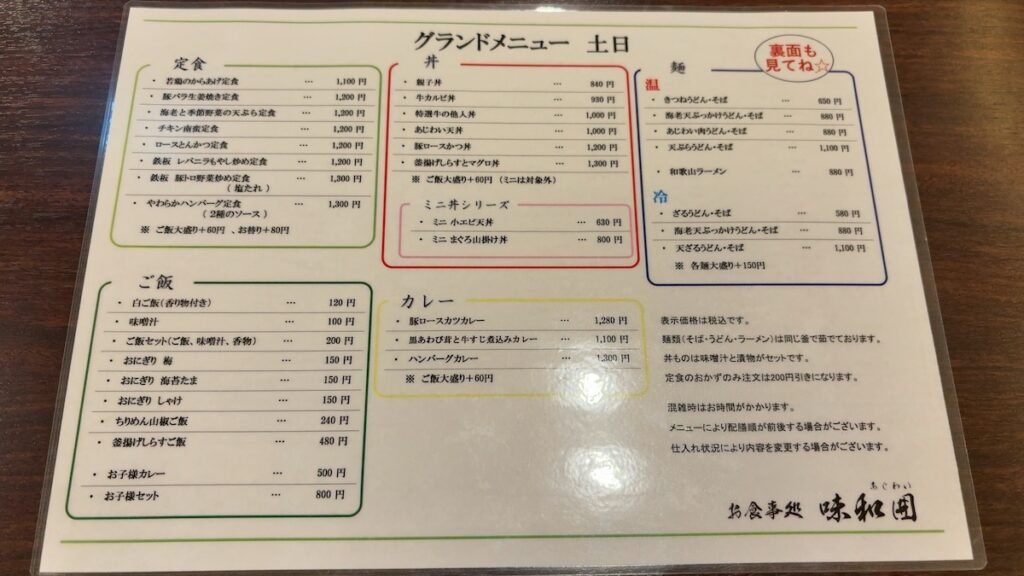 グランドメニュー 土日
裏面も
見てね☆
定食
・ 若鶏のからあげ定食 … 1,100 円
・ 豚バラ生姜焼き定食 … 1,200 円
・ 海老と季節野菜の天ぷら定食 … 1,200 円
・ チキン南蛮定食 … 1,200 円
・ ロースとんかつ定食 … 1,200 円
・ 鉄板 レバニラもやし炒め定食 … 1,200 円
・ 鉄板 豚トロ野菜炒め定食 … 1,300 円
(塩たれ)
・ やわらかハンバーグ定食 … 1,300 円
(2種のソース)
※ ご飯大盛り+60円 、お替り+80円
丼
・ 親子丼 … 840 円
・ 牛カルビ丼 … 930 円
・ 特選牛の他人丼 … 1,000 円
・ あじわい天丼 … 1,000 円
・ 豚ロースかつ丼 … 1,200 円
・ 釜揚げしらすとマグロ丼 … 1,300 円
※ ご飯大盛り+60円 (ミニは対象外)
ミニ丼シリーズ
・ ミニ 小エビ天丼 … 630 円
・ ミニ まぐろ山掛け丼 … 800 円
麺
温
・ きつねうどん・そば … 650 円
・ 海老天ぶっかけうどん・そば … 880 円
・ あじわい肉うどん・そば … 880 円
・ 天ぷらうどん・そば … 1,100 円
・ 和歌山ラーメン … 880 円
冷
・ ざるうどん・そば … 580 円
・ 海老天ぶっかけうどん・そば … 880 円
・ 天ざるうどん・そば … 1,100 円
※ 各麺大盛り+150円
ご飯
・ 白ご飯(香り物付き) … 120 円
・ 味噌汁 … 100 円
・ ご飯セット(ご飯、味噌汁、香物) … 200 円
・ おにぎり 梅 … 150 円
・ おにぎり 海苔たま … 150 円
・ おにぎり しゃけ … 150 円
・ ちりめん山椒ご飯 … 240 円
・ 釜揚げしらすご飯 … 480 円
・ お子様カレー … 500 円
・ お子様セット … 800 円
カレー
・ 豚ロースカツカレー … 1,280 円
・ 黒あわび茸と牛すじ煮込みカレー … 1,100 円
・ ハンバーグカレー … 1,300 円
※ ご飯大盛り+60円
表示価格は税込です。
麺類(そば・うどん・ラーメン)は同じ釜で茹でております。
丼ものは味噌汁と漬物がセットです。
定食のおかずのみ注文は200円引きになります。
混雑時はお時間がかかります。
メニューにより配膳順が前後する場合がございます。
仕入れ状況により内容を変更する場合がございます。
あじわい
お食事処 味和囲